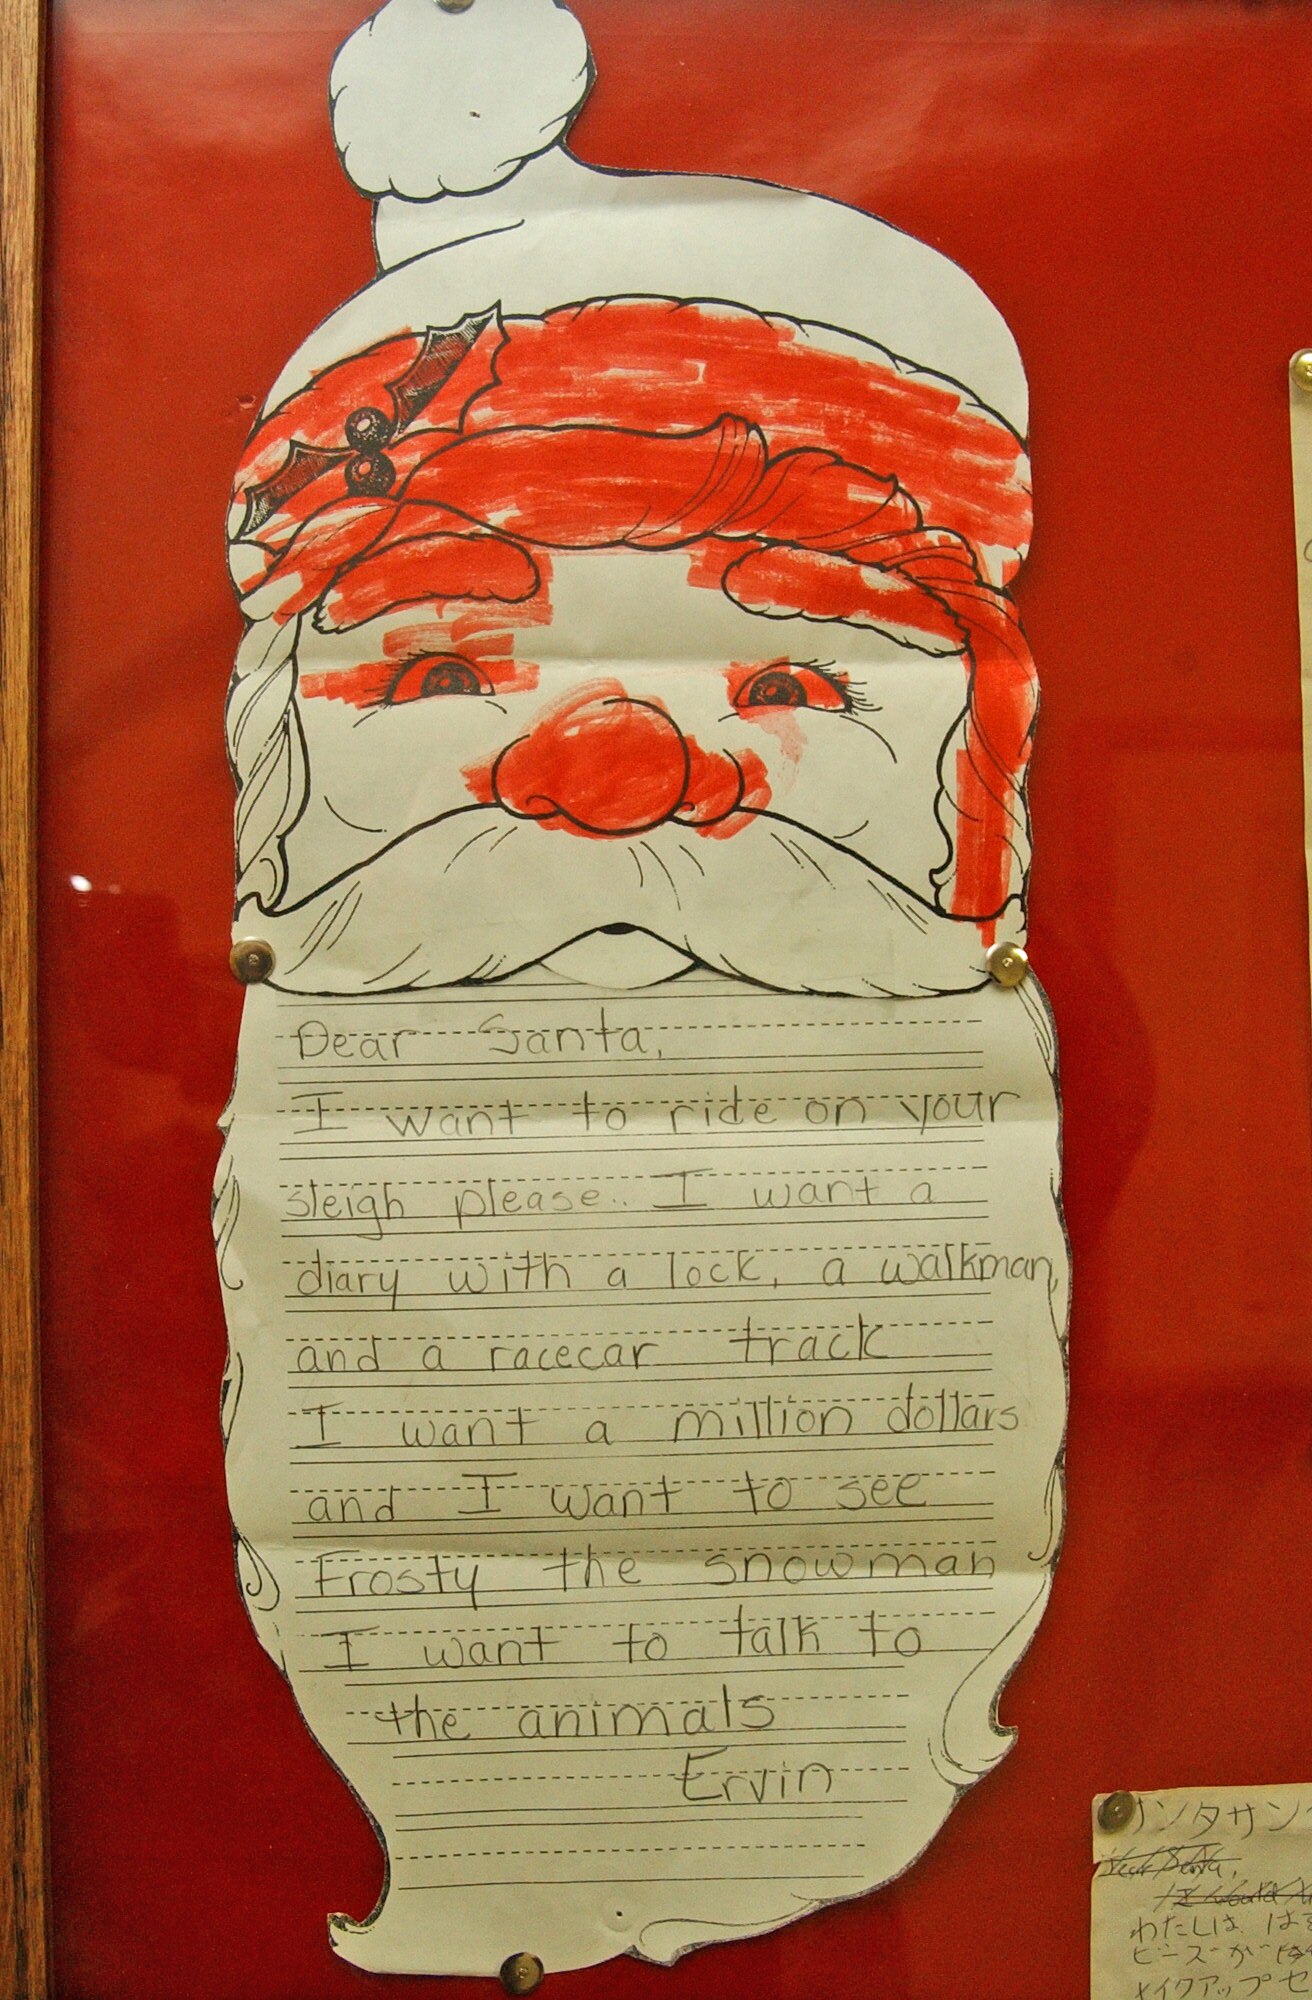 Dear Santa,
I want to ride on your
sleigh please.. I want a
diary with a lock, a walkman,
and a racecar track
I want a million dollars
and I want to see
Frosty the snowman
I want to talk to
the animals
Ervin
ンタサン
Dear Santa,
I would
わたしは は
ビーズが
メイクアップセ